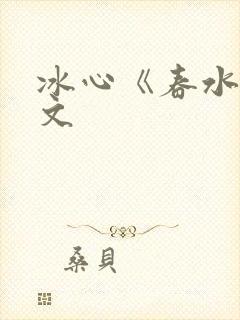 冰心《春水
文
桑貝